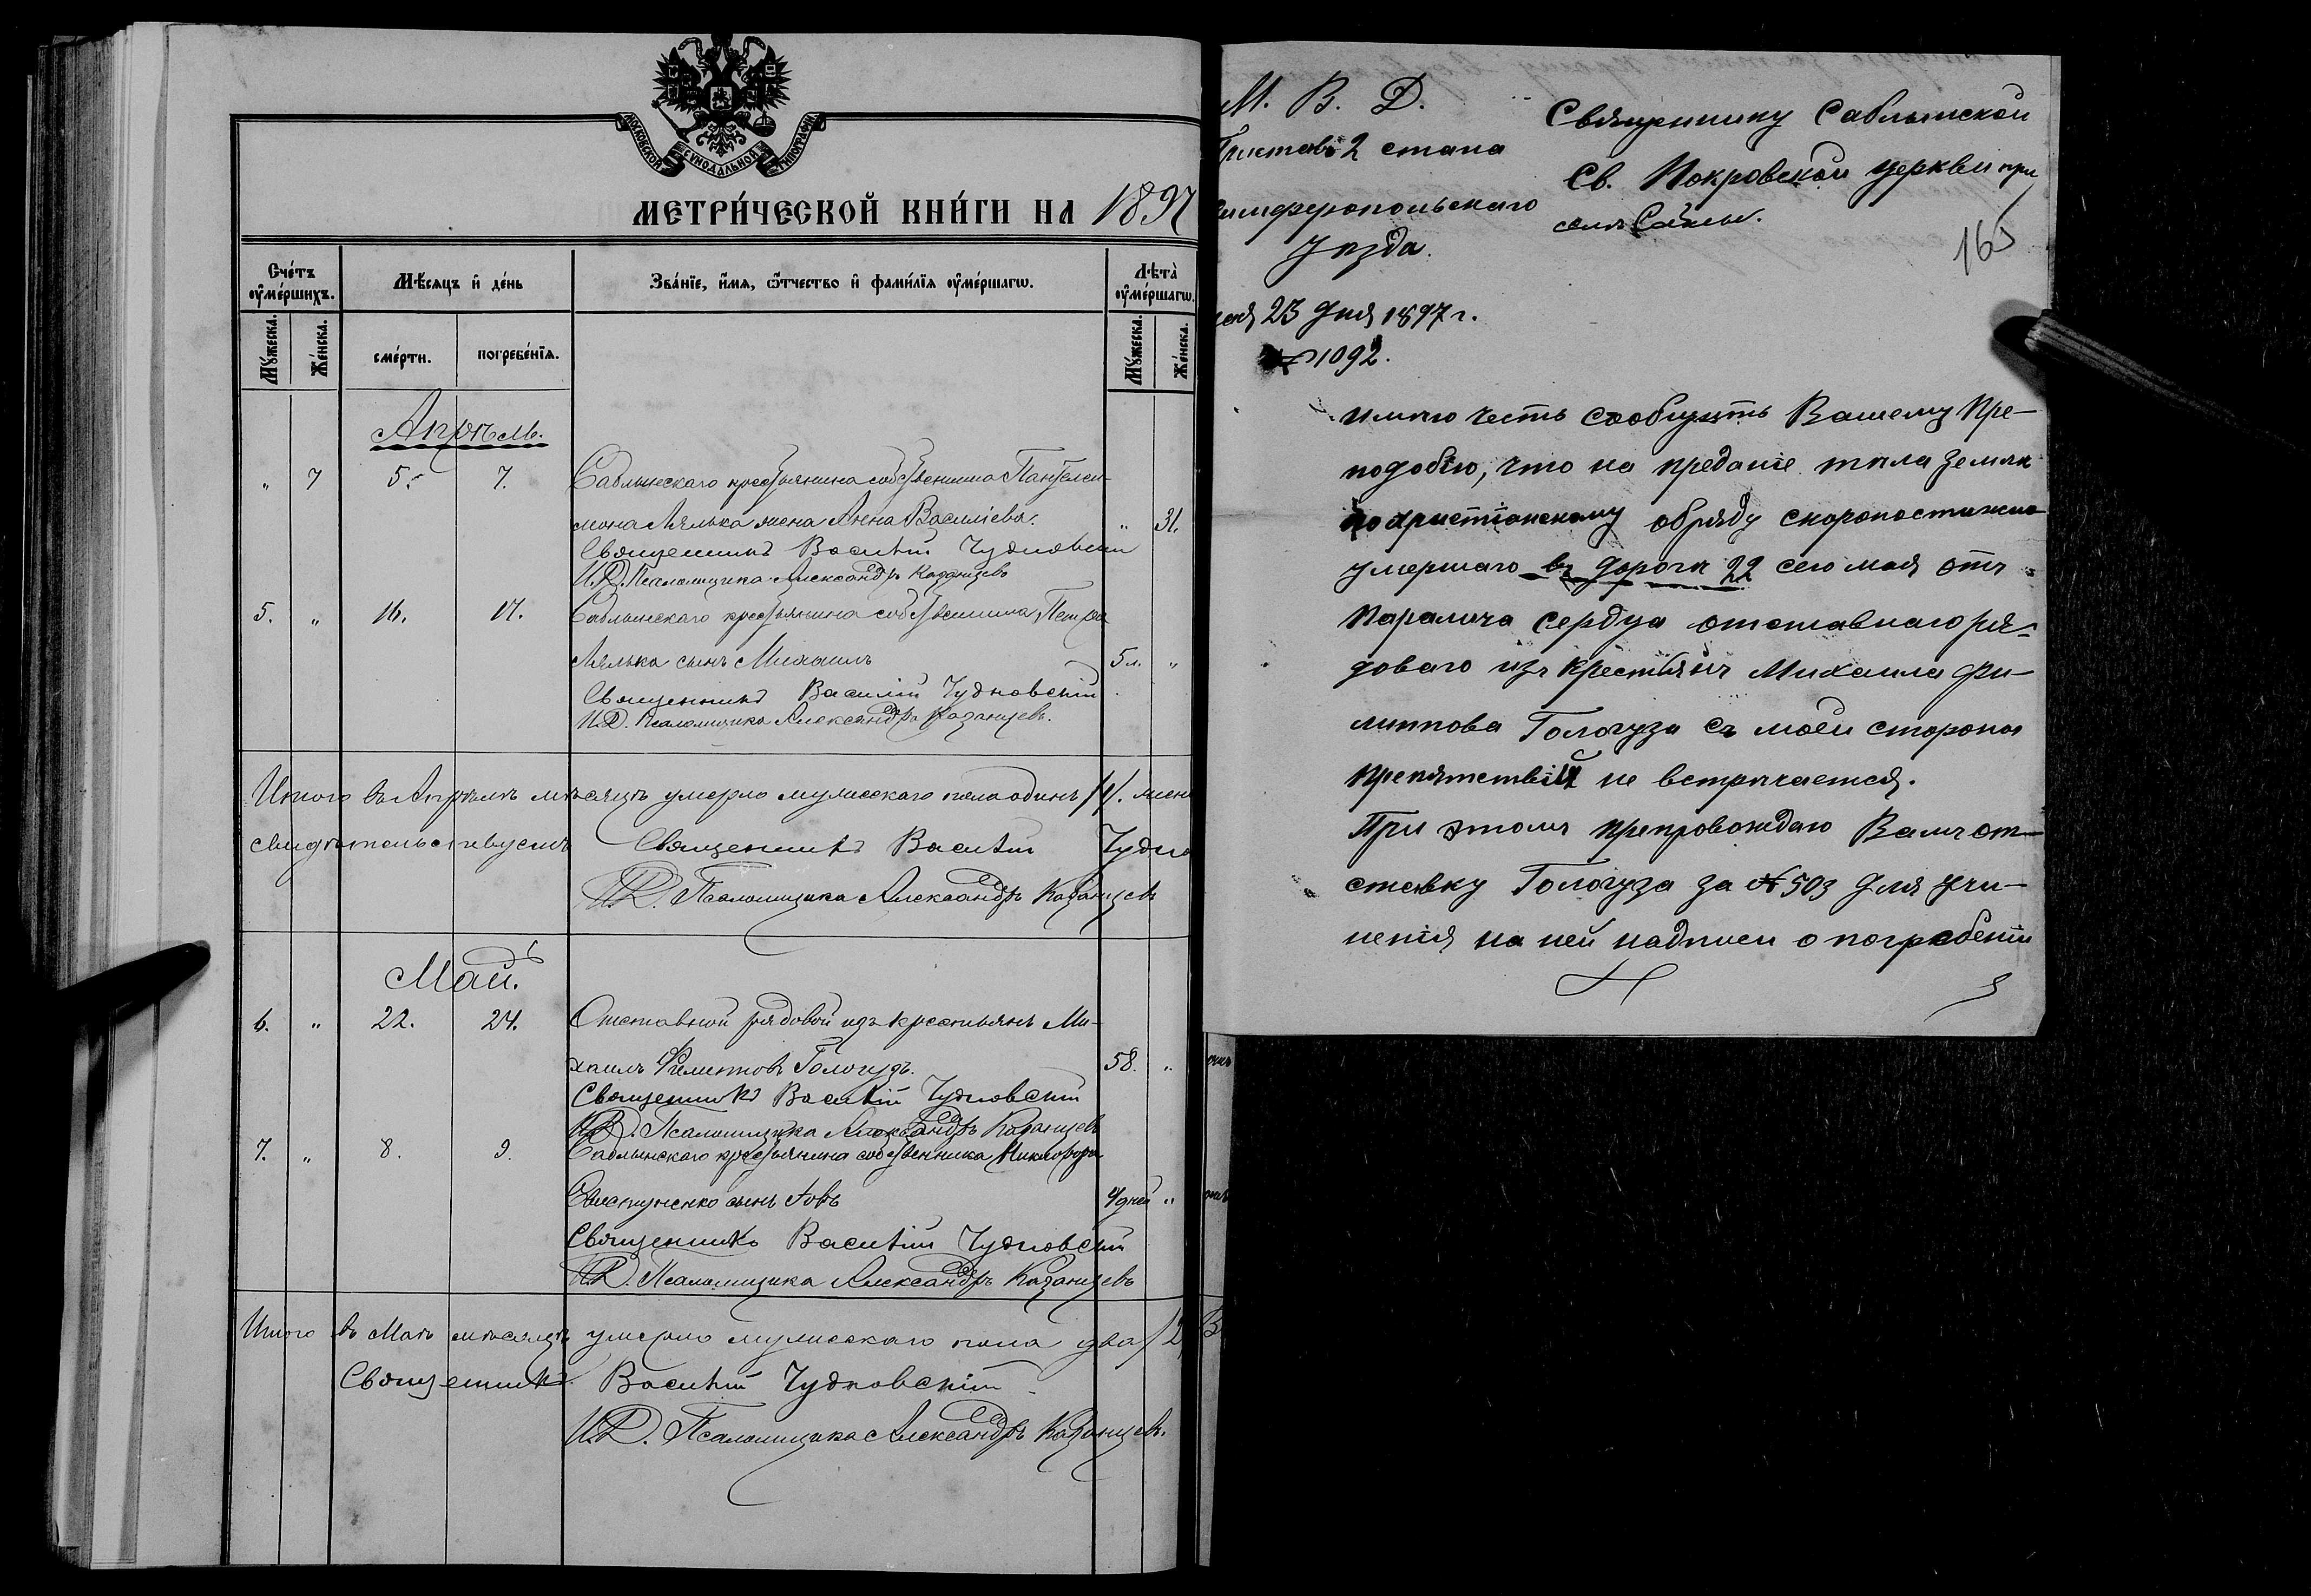 МОСКОВСКОЙ СѴНОДАЛЬНОЙ ТИПОГРАФІИ
МЕТРИ́ЧЕСКОЙ КНИ́ГИ НА 1897
Сче́тъ ᲂу҆ме́ршихъ.
Мѣ́сяцъ и҆ де́нь
Зва́нїе, и҆́мя, ѻ҆́тчество и҆ фами́лїя ᲂу҆ме́ршагѡ.
Лѣта̀ ᲂу҆ме́ршагѡ.
Мꙋ́жеска.
Же́нска.
сме́рти.
погребе́нїя.
Мꙋ́жеска.
Же́нска.
Апрѣль.
" 7 5. 7. Саблынскаго крестьянина собственника Пантелей-
мона Лялька жена Анна Василіева. " 31.
Священникъ Василій Чудновскій
И.Д. Псаломщика Александръ Казанцевъ
5. " 16. 17. Саблынскаго крестьянина собственника Петра
Лялька сынъ Михаилъ 5 л. "
Священникъ Василій Чудновскій
И.Д. Псаломщика Александръ Казанцевъ.
Итого въ Апрѣлѣ мѣсяцѣ умерло мужескаго пола одинъ /1/. жен
свидѣтельствуемъ Священникъ Василій Чудно
И.Д. Псаломщика Александръ Казанцевъ
Май.
6. " 22. 24. Отставной рядовой изъ крестьянъ Ми-
хаилъ Филипповъ Гологузъ. 58. "
Священникъ Василій Чудновскій
И.Д. Псаломщика Александръ Казанцевъ
7. " 8. 9. Саблынскаго крестьянина собственника Никифора
сынъ Іовъ 4 дней "
Священникъ Василій Чудновскій
И.Д. Псаломщика Александръ Казанцевъ
Итого въ Маѣ мѣсяцѣ умерло мужескаго пола два /2/
Священникъ Василій Чудновскій
И.Д. Псаломщика Александръ Казанцевъ.
М. В. Д.
Приставъ 2 стана
Симферопольскаго
Уѣзда.
мая 23 дня 1897 г.
№ 1092.
Священнику Саблынской
Св. Покровской церкви при
селѣ Саблы.
165
Имѣю честь сообщить Вашему Пре-
подобію, что на преданіе тѣла землѣ
по христіанскому обряду скоропостижно
умершаго въ дорогѣ 22 сего мая отъ
паралича сердца отставнаго ря-
доваго изъ крестьянъ Михаила Фи-
липпова Гологуза съ моей стороны
препятствій не встрѣчается.
При этомъ препровождаю Вамъ от-
ставку Гологуза за № 503 для учи-
ненія на ней надписи о погребеніи